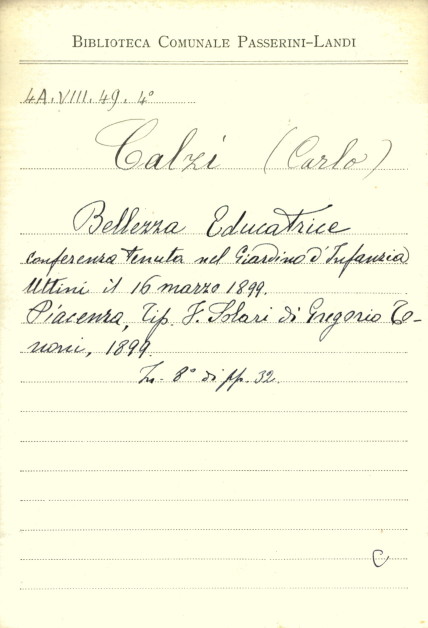 BIBLIOTECA COMUNALE PASSERINI-LANDI
4A.VIII.49.4°
Calzi (Carlo)
Bellezza Educatrice
conferenza tenuta nel Giardino d'Infanzia
Uttini il 16 marzo 1899.
Piacenza, Tip. F. Solari di Gregorio To-
noni, 1899.
In-8° di pp. 32.
C